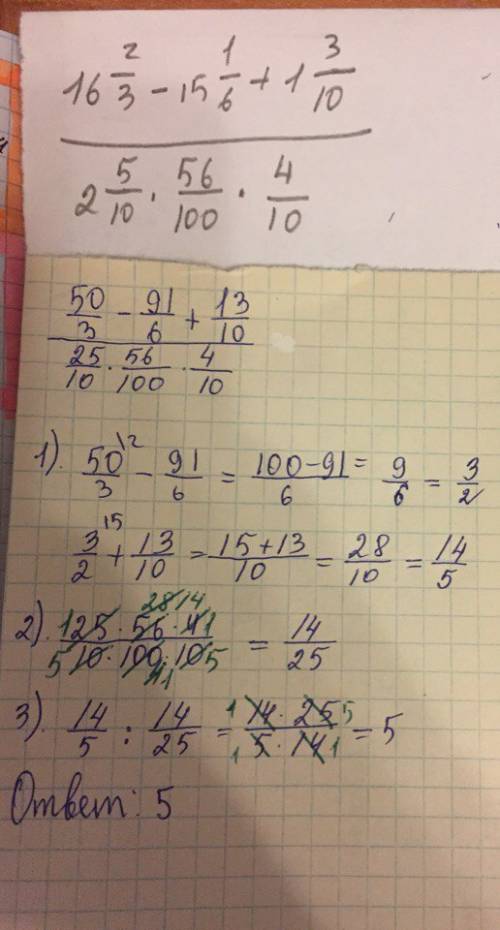 16 2/3 - 15 1/6 + 1 3/10
2 5/10 · 56/100 · 4/10
50/3 - 91/6 + 13/10
25/10 · 56/100 · 4/10
1). 50/3 \2 - 91/6 = 100-91/6 = 9/6 = 3/2
3/2 \5 + 13/10 = 15+13/10 = 28/10 = 14/5
2). 25 · 56 · 4 / 10 · 100 · 10 = 14/25
3). 14/5 : 14/25 = 14 · 25 / 5 · 14 = 5
Ответ: 5